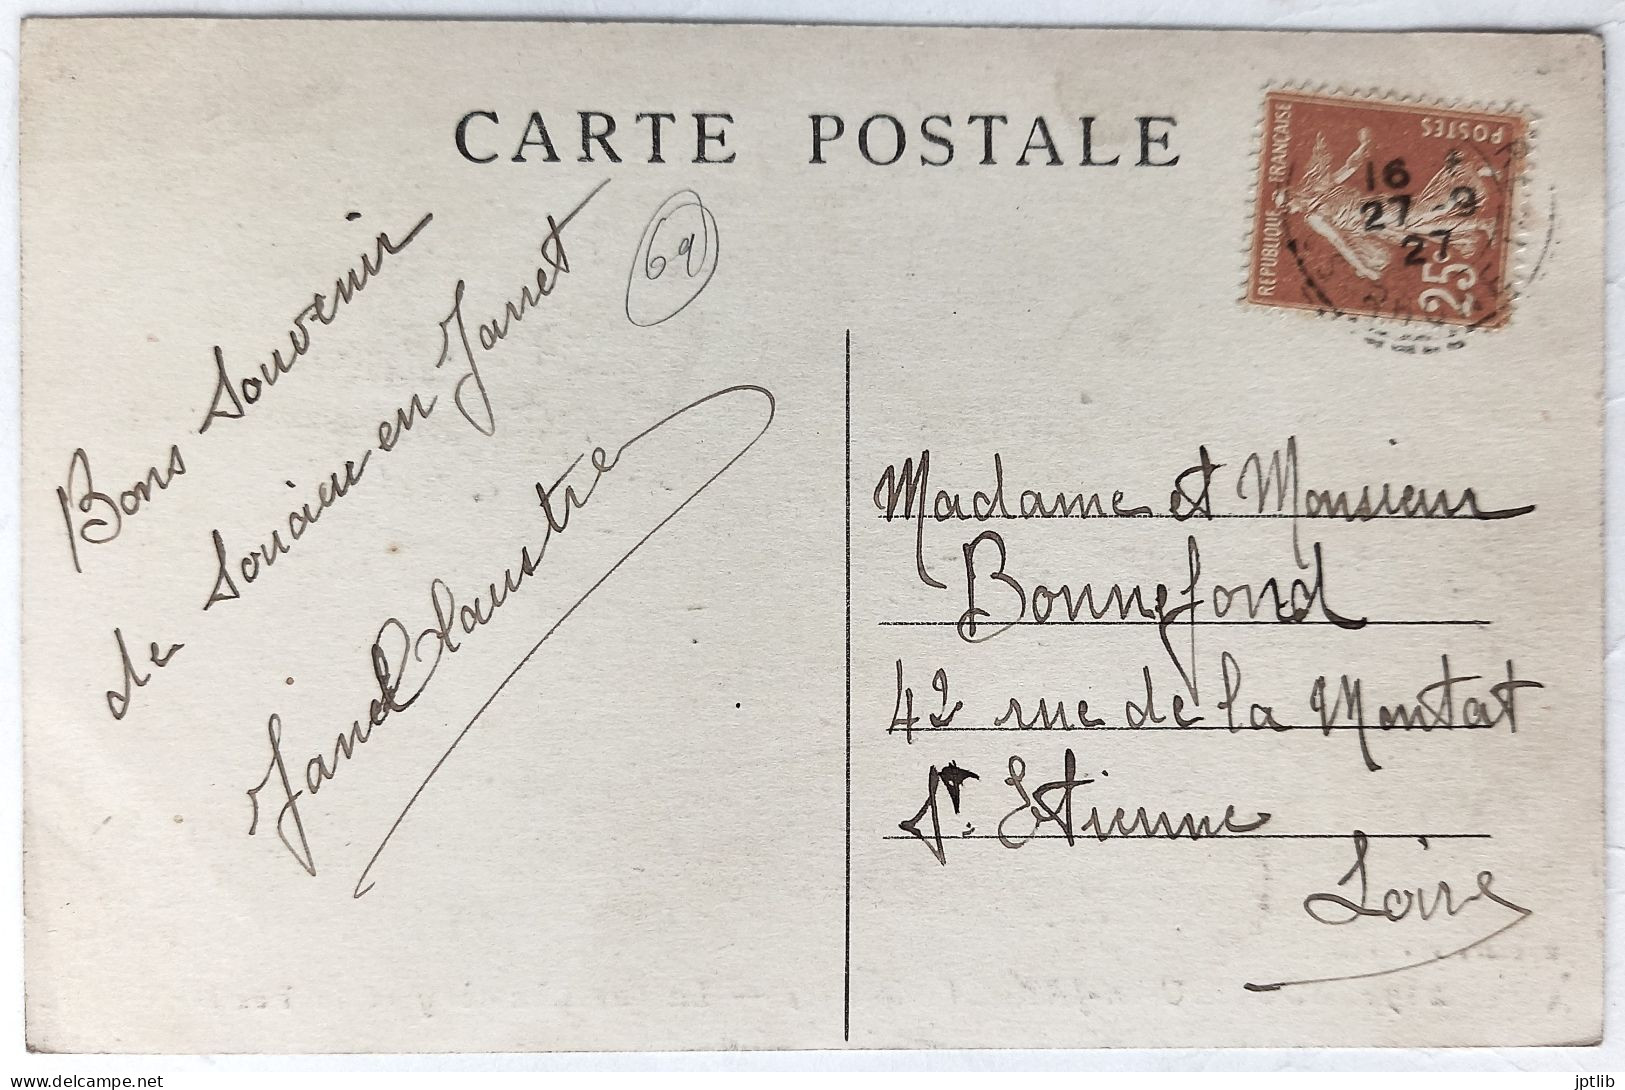 CARTE POSTALE
REPUBLIQUE FRANÇAISE
POSTES
25c
16
27 - 9
27
69
Bons Souvenir
de Soucieu en Jarret
Madame et Monsieur
Bonnefond
42 rue de la Montat
St. Etienne
Loire
delcampe.net
jptlib